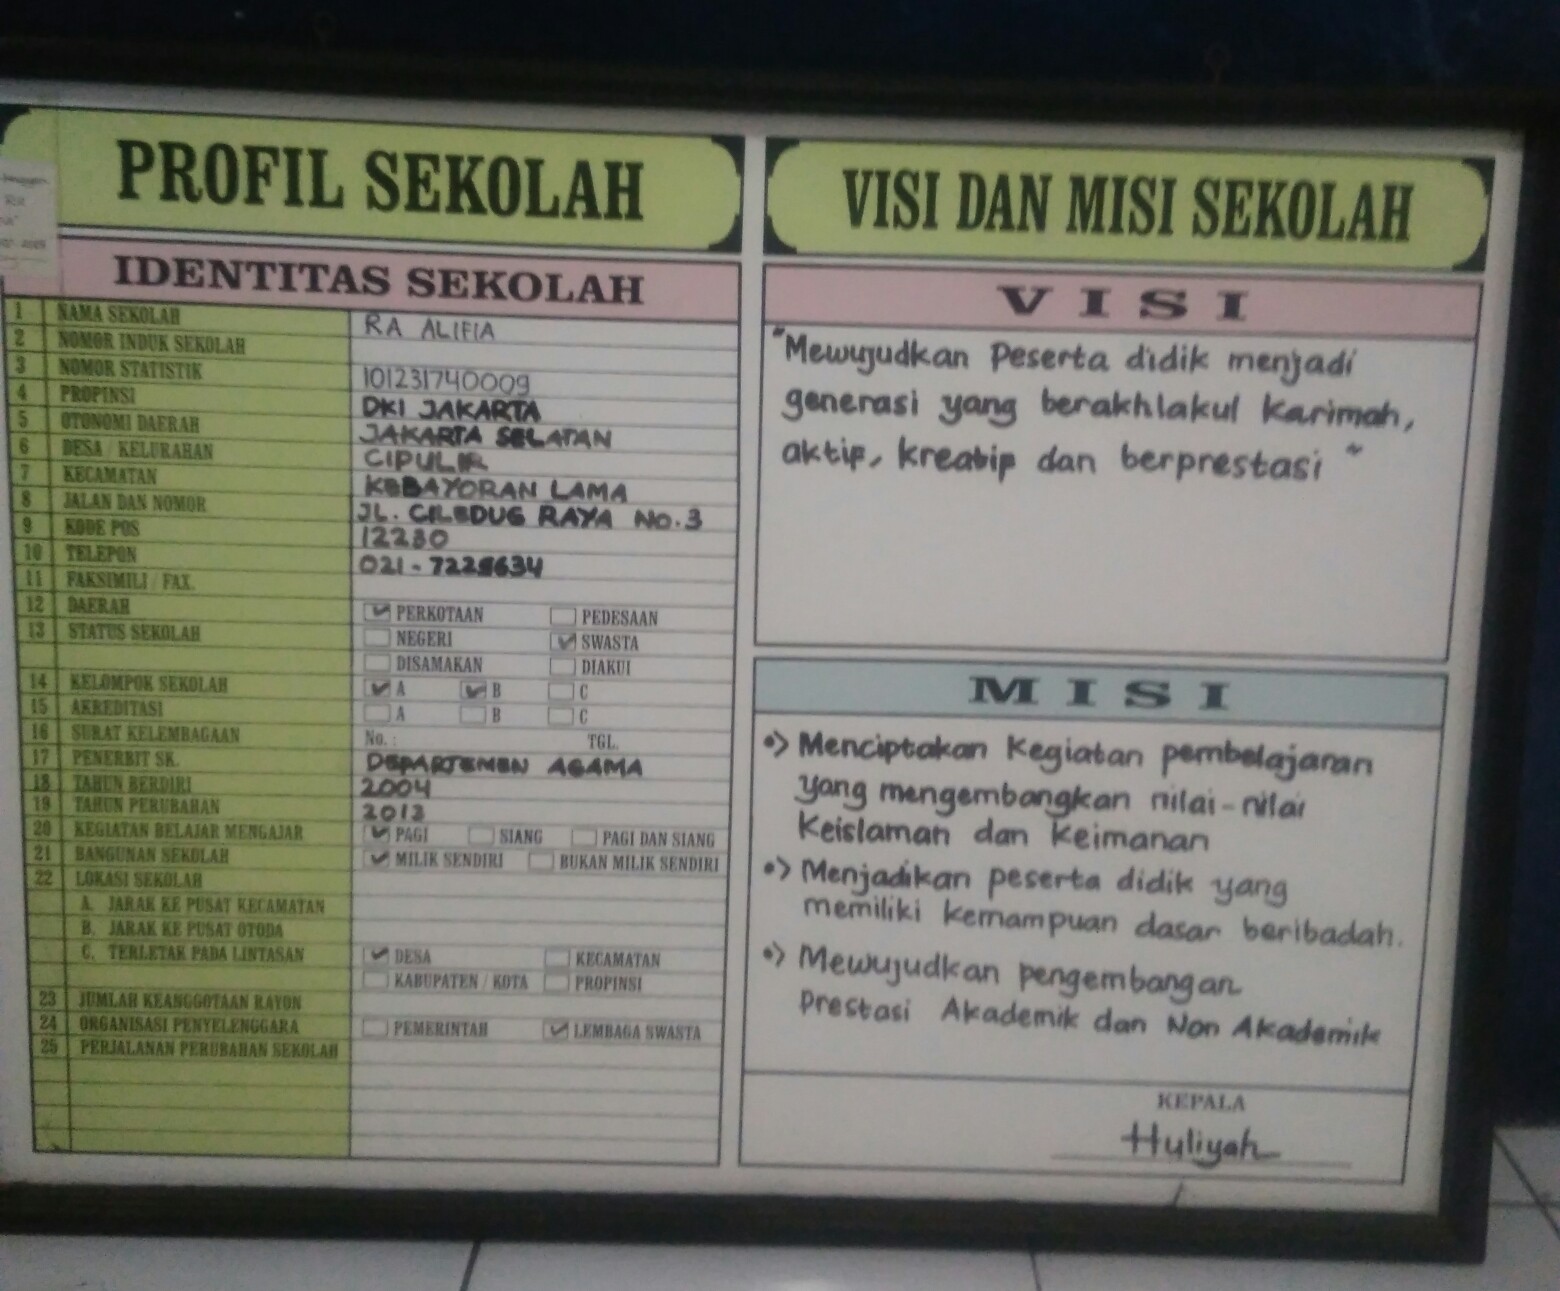 PROFIL SEKOLAH
IDENTITAS SEKOLAH
1 NAMA SEKOLAH RA ALIFIA
2 NOMOR INDUK SEKOLAH
3 NOMOR STATISTIK 101231740009
4 PROPINSI DKI JAKARTA
5 OTONOMI DAERAH JAKARTA SELATAN
6 DESA / KELURAHAN CIPULIR
7 KECAMATAN KEBAYORAN LAMA
8 JALAN DAN NOMOR JL. CILEDUG RAYA No.3
9 KODE POS 12230
10 TELEPON 021 -
11 FAKSIMILI / FAX.
12 DAERAH PERKOTAAN PEDESAAN
13 STATUS SEKOLAH NEGERI SWASTA
DISAMAKAN DIAKUI
14 KELOMPOK SEKOLAH A B C
15 AKREDITASI A B C
16 SURAT KELEMBAGAAN No. : TGL.
17 PENERBIT SK. DEPARTEMEN AGAMA
18 TAHUN BERDIRI 2004
19 TAHUN PERUBAHAN 2013
20 KEGIATAN BELAJAR MENGAJAR PAGI SIANG PAGI DAN SIANG
21 BANGUNAN SEKOLAH MILIK SENDIRI BUKAN MILIK SENDIRI
22 LOKASI SEKOLAH
A. JARAK KE PUSAT KECAMATAN
B. JARAK KE PUSAT OTODA
C. TERLETAK PADA LINTASAN DESA KECAMATAN
KABUPATEN / KOTA PROPINSI
23 JUMLAH KEANGGOTAAN RAYON
24 ORGANISASI PENYELENGGARA PEMERINTAH LEMBAGA SWASTA
25 PERJALANAN PERUBAHAN SEKOLAH
VISI DAN MISI SEKOLAH
VISI
"Mewujudkan Peserta didik menjadi
generasi yang berakhlakul Karimah,
aktif, kreatif dan berprestasi "
MISI
•> Menciptakan Kegiatan pembelajaran
yang mengembangkan nilai-nilai
Keislaman dan Keimanan
•> Menjadikan peserta didik yang
memiliki kemampuan dasar beribadah.
•> Mewujudkan pengembangan
Prestasi Akademik dan Non Akademik
KEPALA
Huliyah